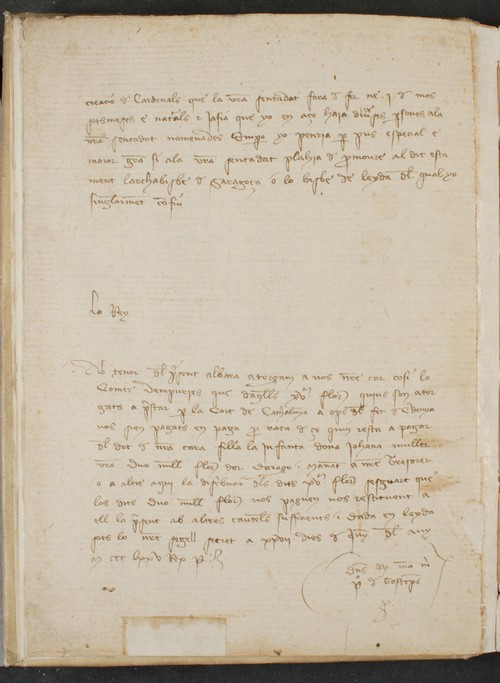 creacio d Cardenals que la vra sentedat fara d fer ne j. d mos
sotsmeses e naturals e jassia que yo en aço haia diuses psones ala
vra sentedat nomenades Empo yo penria p pus especial e
maior gra si ala vra sentedat plahia d pmoure al dit esta
ment larchabisbe d Saragoça o lo bisbe de leyda dl qual yo
singlarment confiu
Lo Rey
Ab tenor dl psent albara atorgam a vos nre car cosi lo
Comte Dempuries que daqlls xvm flor quins son ator
gats a pstar p la Cort de Cathalunya a ops dl fet d
vos sien pagats en paga p rata d ço quius resta a pagar
dl dot d nra cara filla la Infanta dona Johana muller
vra Duo mill flor dor darago. manat a nre Tresorer
o a altre aqui la dels dits xvm flor sesguart que
los dits duo mill flor vos paguen vos restituent a
ell la psent ab altres cauteles sufficients. Dada en leyda
sots lo nre segell secret a xxvii dies d juny dl any
m ccc lxxv Rex p.
Dns Rex ma m
p. d